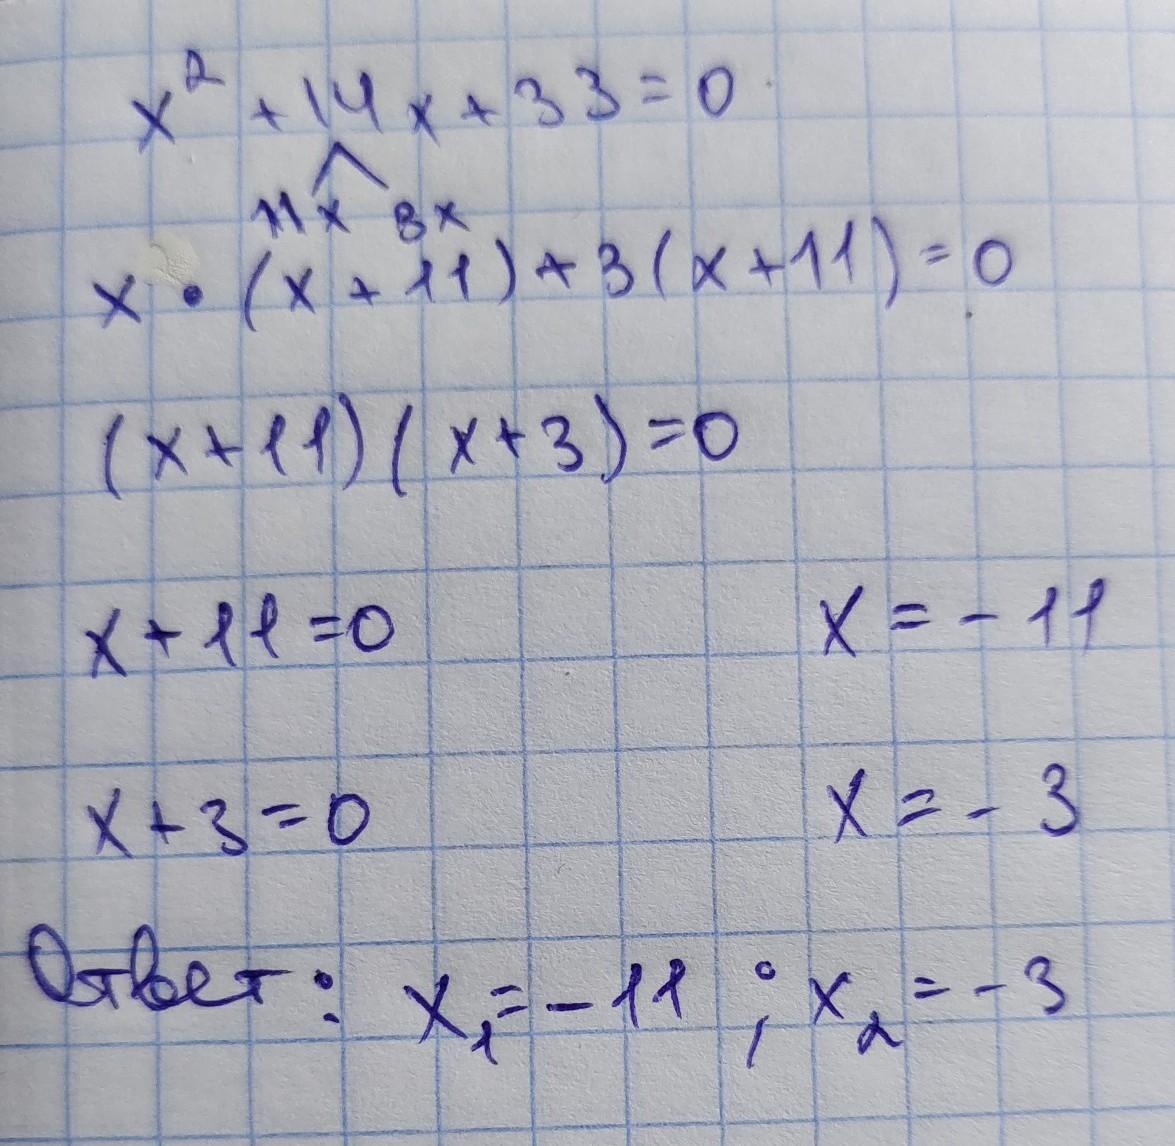 x² + 14x + 33 = 0
11x 3x
x • (x + 11) + 3(x + 11) = 0
(x + 11)(x + 3) = 0
x + 11 = 0 x = - 11
x + 3 = 0 x = - 3
Ответ: x₁ = - 11 ; x₂ = - 3